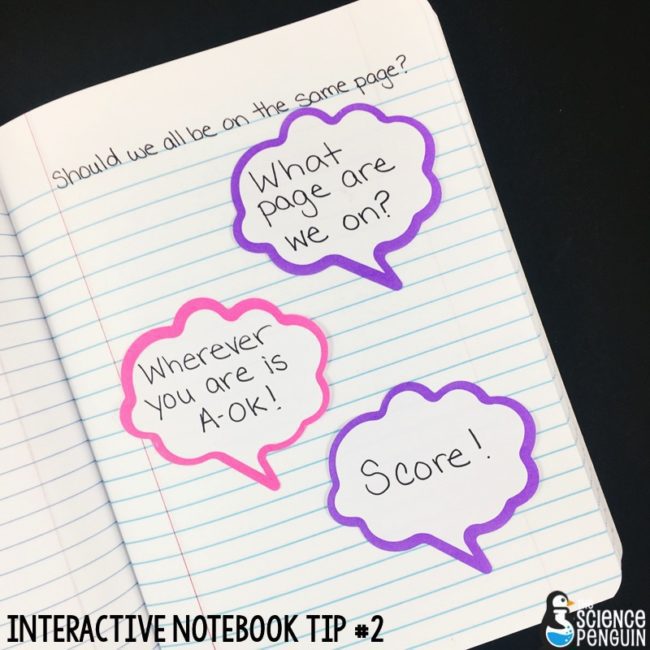 Should we all be on the same page?
What
page are
we on?
Wherever
you are is
A-OK!
Score!
INTERACTIVE NOTEBOOK TIP #2
THE
SCIENCE
PENGUIN